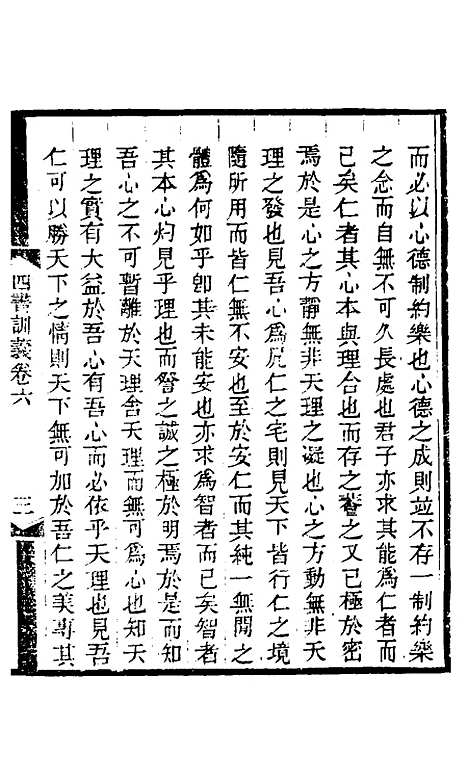 而必以心德制約樂也心德之成則並不存一制約樂
之念而自無不可久長處也君子亦求其能為仁者而
已矣仁者其心本與理合也而存之養之又已極於密
焉於是心之方靜無非天理之凝也心之方動無非天
理之發也見吾心為凥仁之宅則見天下皆行仁之境
隨所用而皆仁無不安也至於安仁而其純一無閒之
體為何如乎卽其未能安也亦求為智者而已矣智者
其本心灼見乎理也而督之誠之極於明焉於是而知
吾心之不可暫離於天理舍天理而無可為心也知天
理之實有大益於吾心有吾心而必依乎天理也見吾
仁可以勝天下之情則天下無可加於吾仁之美專其
四書訓義卷六
三